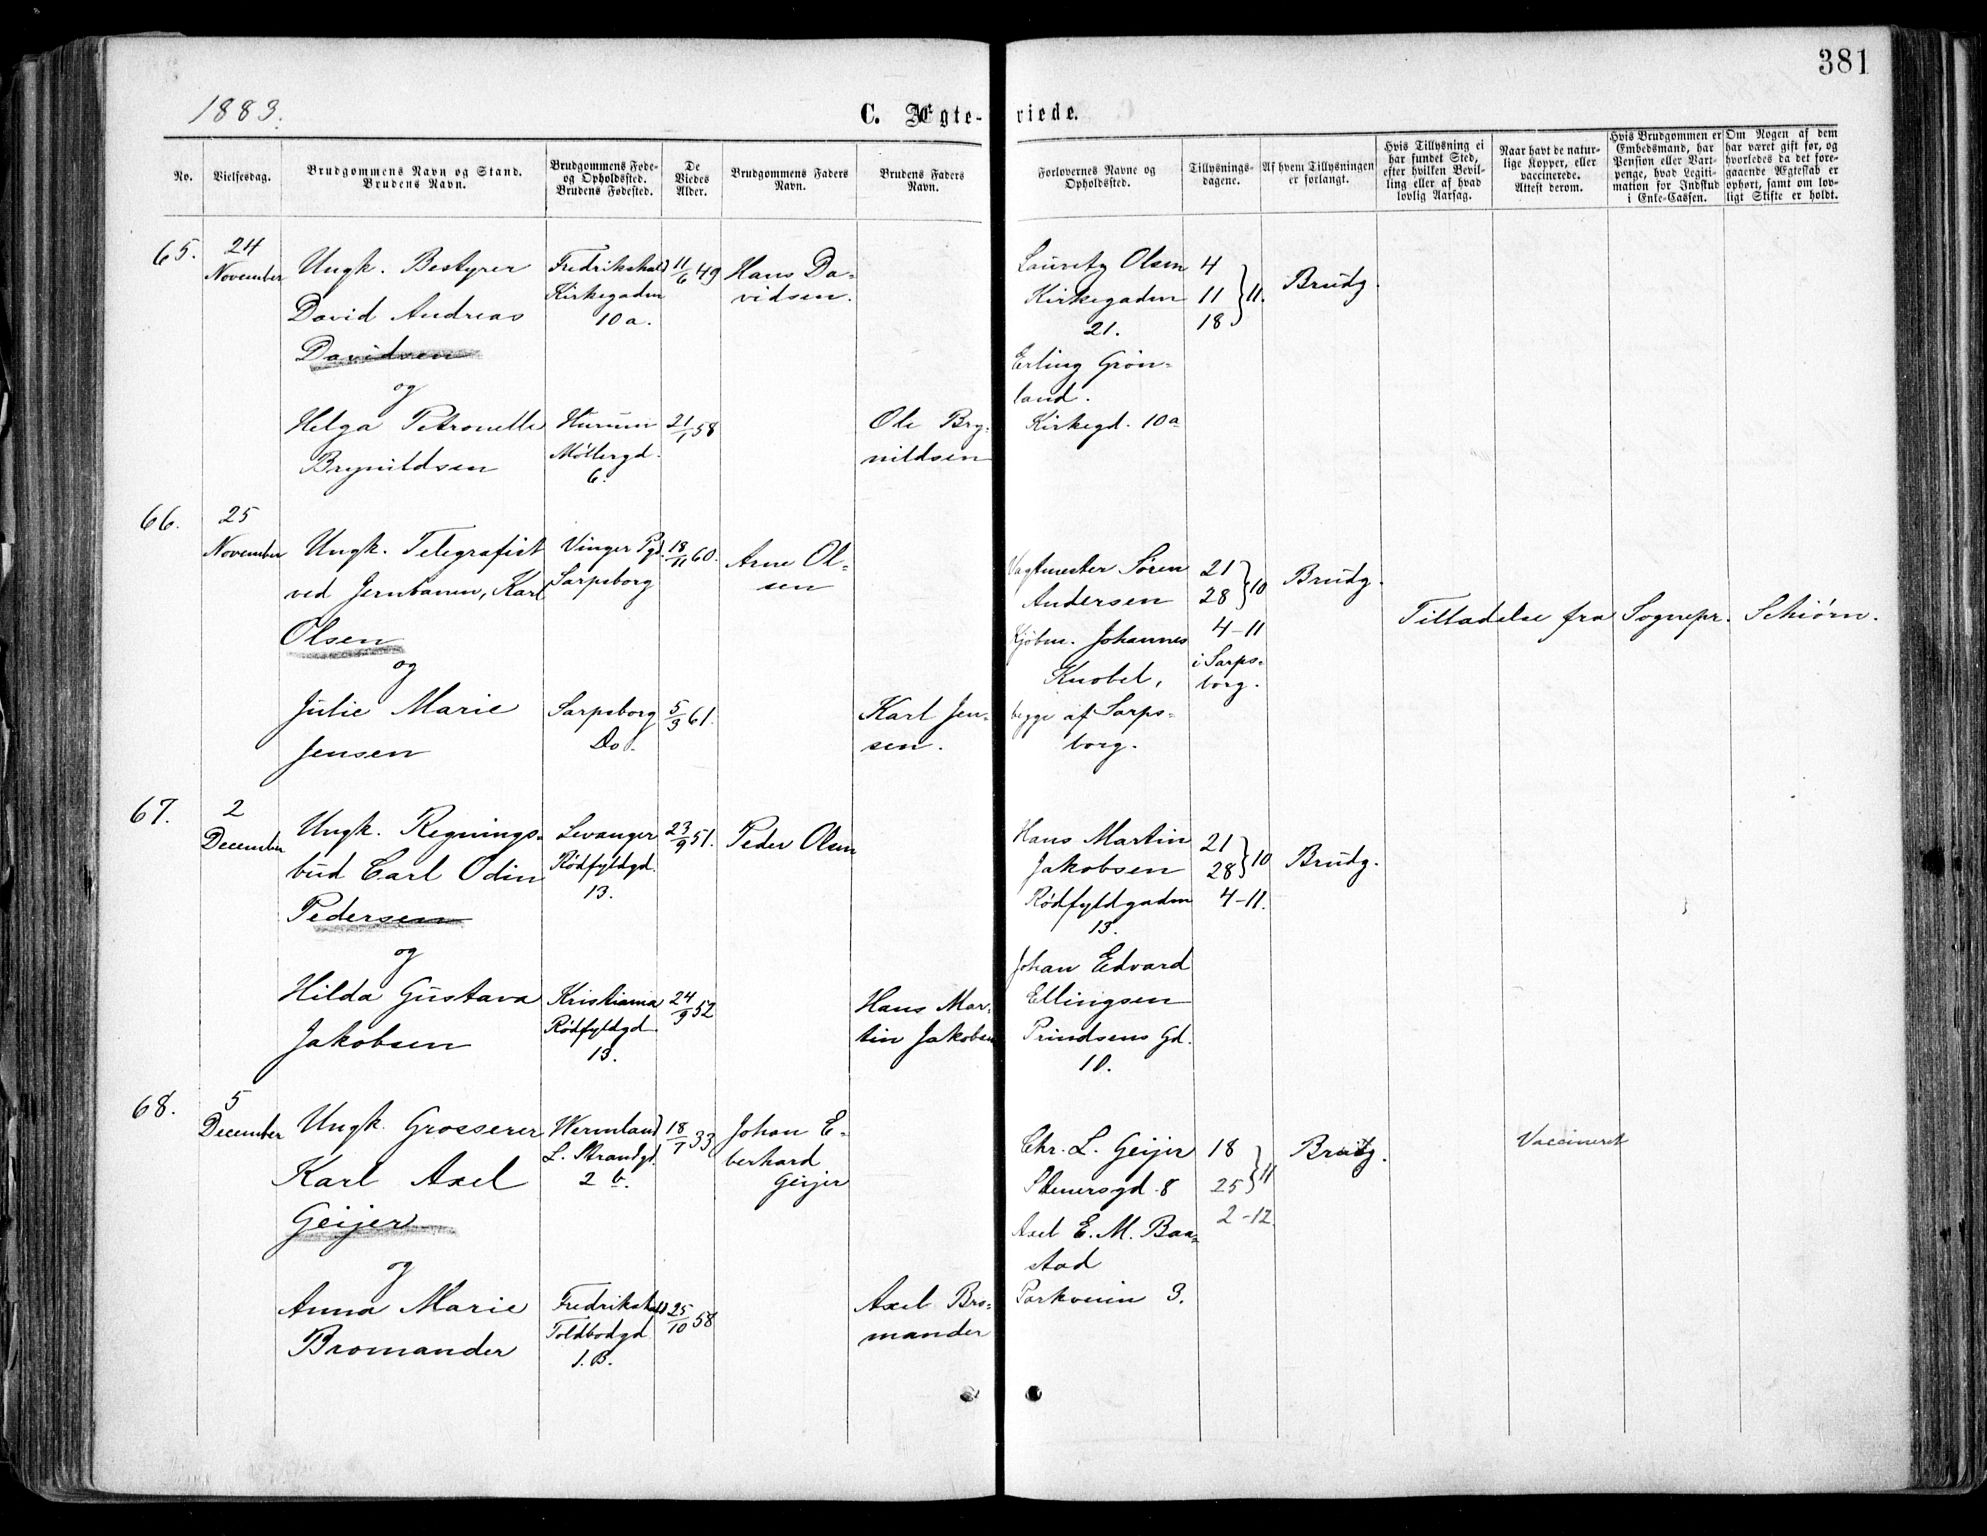 381
1883.
C. Ægte-
viede.
No.
Vielsesdag.
Brudgommens Navn og Stand.
Brudens Navn.
Brudgommens Føde-
og Opholdssted.
Brudens Fødested.
De
Viedes
Alder.
Brudgommens Faders
Navn.
Brudens Faders
Navn.
Forlovernes Navne og
Opholdssted.
Tillysnings-
dagene.
Af hvem Tillysningen
er forlangt.
Hvis Tillysning ei
har fundet Sted,
efter hvilken Bevil-
ling eller af hvad
lovlig Aarsag.
Naar havt de natur-
lige Kopper, eller
vaccinerede.
Attest derom.
Hvis Brudgommen er
Embedsmand, har
Pension eller Vart-
penge, hvad Legiti-
mation for Indskud
i Enke-Cassen.
Om Nogen af dem
har været gift før, og
hvorledes da det fore-
gaaende Ægteskab er
ophørt, samt om lov-
ligt Skifte er holdt.
65.
24
November
Ungk. Bestyrer
David Andreas
Davidsen
og
Helga Petronelle
Brynildsen
Fredrikshald
Kirkegaden
10a.
Hurum
Møllergd.
6.
11/6 49
21/1 58
Hans Da-
vidsen.
Ole Bry-
nildsen
Lauritz Olsen
Kirkegaden
21.
Erling Grøn-
land.
Kirkegd. 10a
4
11 } 11.
18
Brudg.
66.
25
November
Ungk. Telegrafist
ved Jernbanen, Karl
Olsen
og
Julie Marie
Jensen
Vinger Pgd.
Sarpsborg
Sarpsborg
Do.
18/11 60.
5/3 61.
Arne Ol-
sen
Karl Jen-
sen.
Vagtmester Søren
Andersen
Kjøbm. Johannes
Knobel,
begge af Sarps-
borg.
21
28 } 10
4-11
i Sarps-
borg.
Brudg.
Tilladelse fra Sognepr. Schiørn.
67.
2
December
Ungk. Regnings-
bud Carl Odin
Pedersen
og
Hilda Gustava
Jakobsen
Levanger
Rødfyldgd.
13.
Kristiania
Rødfyldgd.
13.
23/9 51.
24/9 52
Peder Olsen
Hans Mar-
tin Jakobsen
Hans Martin
Jakobsen
Rødfyldgaden
13.
Johan Edvard
Ellingsen
Prindsens Gd.
10.
21
28 } 10
4-11.
Brudg.
68.
5
December
Ungk. Grosserer
Karl Axel
Geijer
og
Anna Marie
Bromander
Wermland
L. Strandgd.
2 b.
Fredrikshald
Toldbodgd.
1. B.
18/7 33
25/10 58
Johan E-
berhard
Geijer
Axel Bro-
mander
Chr. L. Geijer
Stenersgd. 8
Axel E. M. Baa-
stad
Parkveien 3.
18
25 } 11
2-12.
Brudg.
Vaccineret